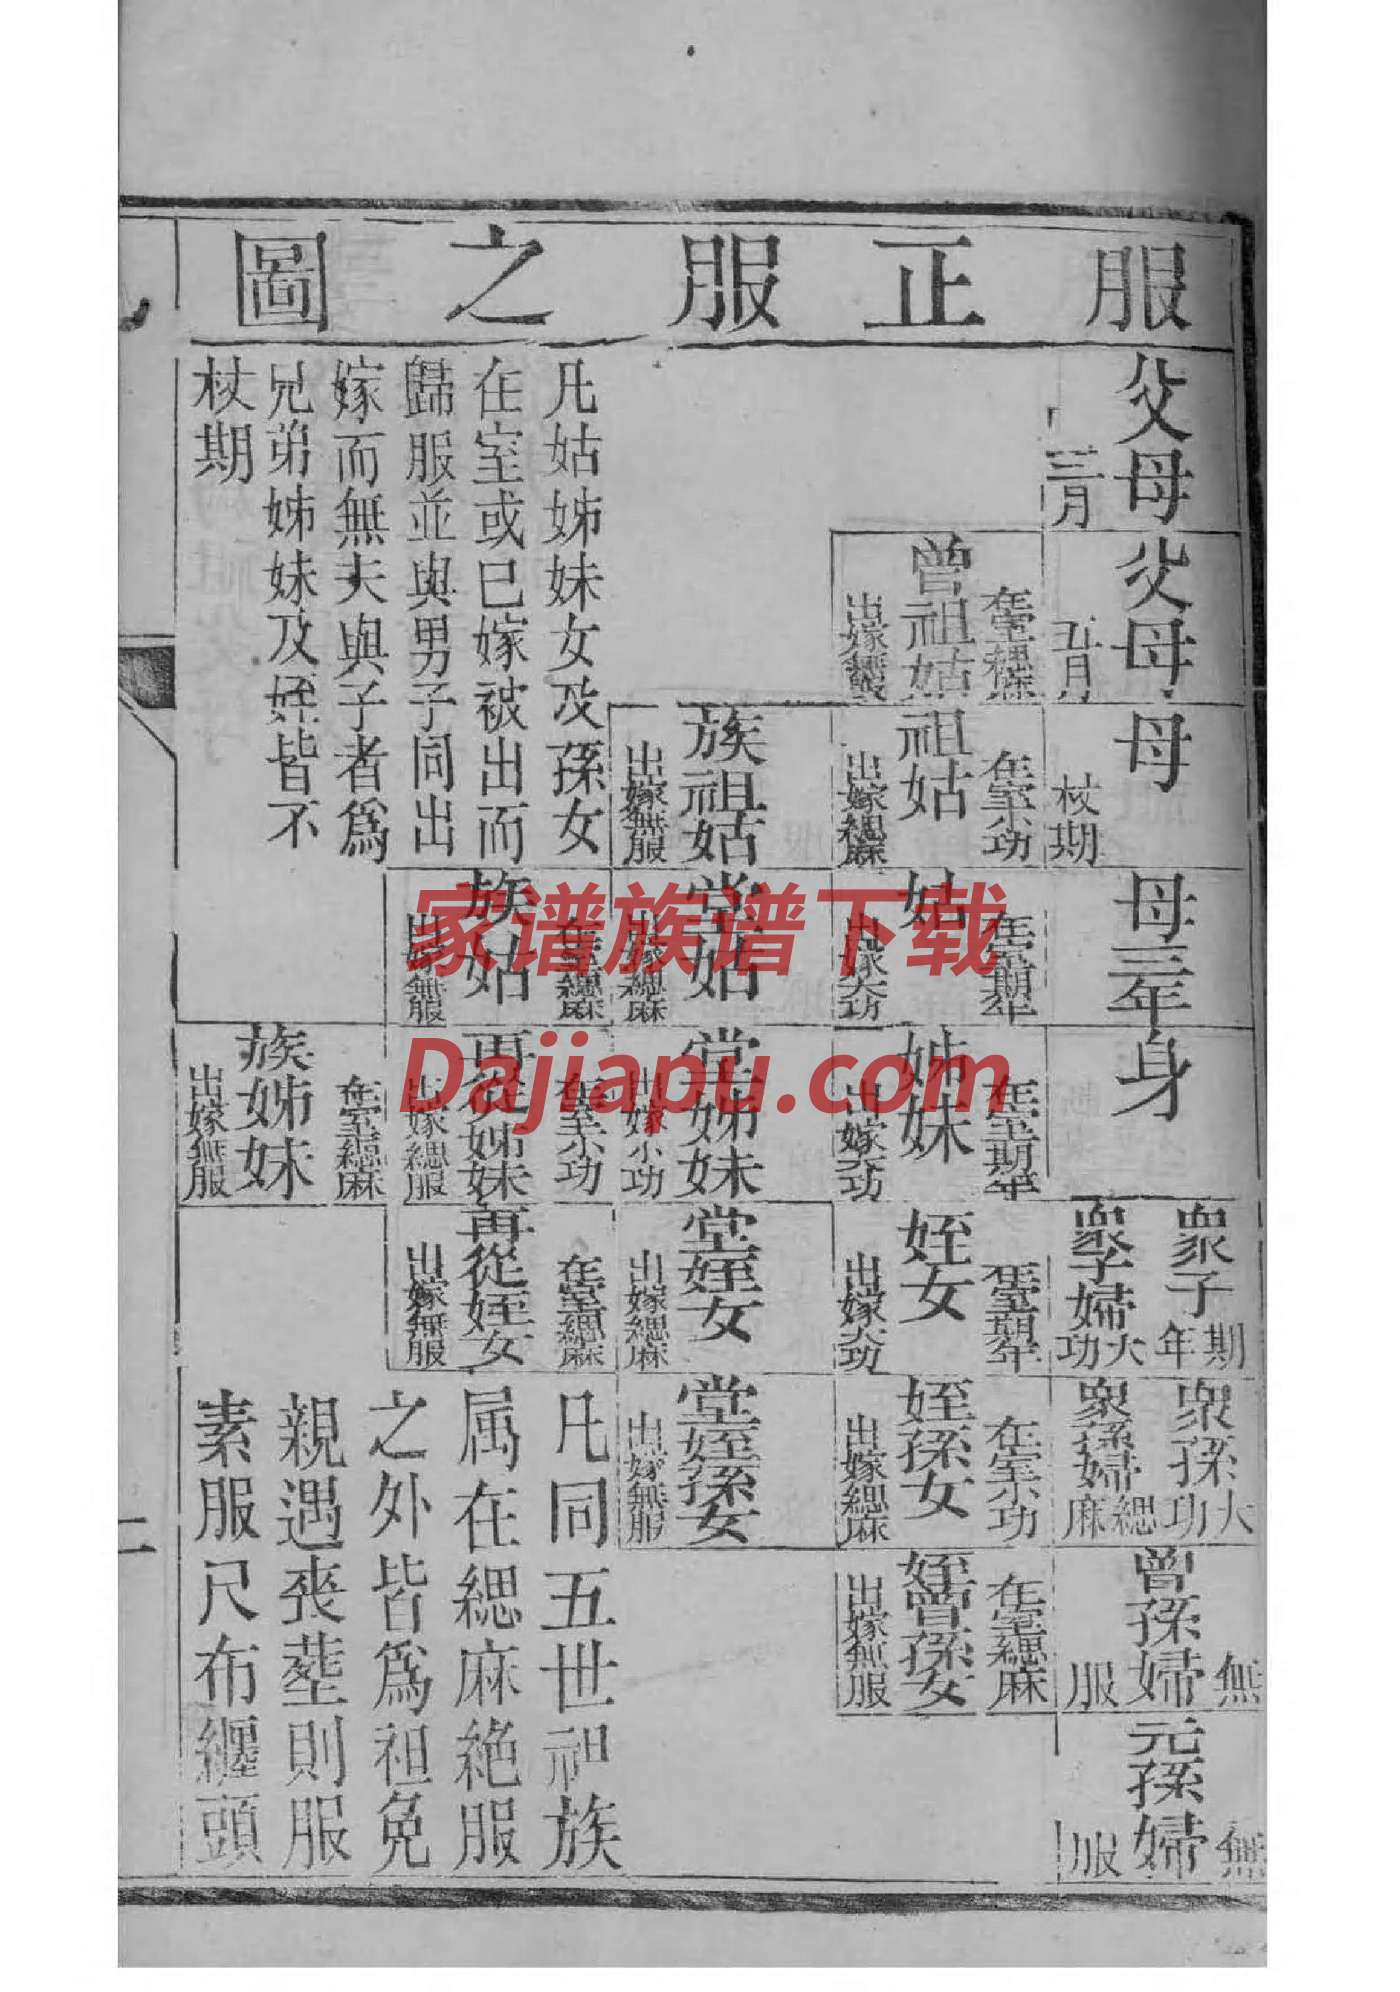 服正服之圖
父母
三月
父母
五月
曾祖姑
在室緦麻
出嫁無服
母
杖期
祖姑
在室小功
出嫁緦麻
族祖姑
出嫁無服
母三年
姑
在室期年
出嫁大功
堂姑
出嫁緦麻
族姑
在室緦麻
出嫁無服
身
姊妹
在室期年
出嫁大功
堂姊妹
出嫁小功
再從姊妹
在室小功
出嫁緦服
族姊妹
在室緦麻
出嫁無服
衆子期年
衆子婦大功
姪女
在室期年
出嫁大功
堂姪女
出嫁緦麻
再從姪女
在室緦麻
出嫁無服
衆孫大功
衆孫婦緦麻
姪孫女
在室小功
出嫁緦麻
堂姪孫女
出嫁無服
曾孫婦
無服
姪曾孫女
在室緦麻
出嫁無服
元孫婦
無服
凡姑姊妹女及孫女
在室或已嫁被出而
歸服並與男子同出
嫁而無夫與子者爲
兄弟姊妹及姪皆不
杖期
凡同五世祖族
属在緦麻絶服
之外皆爲袒免
親遇喪塟則服
素服尺布纏頭
二
家谱族谱下载
Dajiapu.com